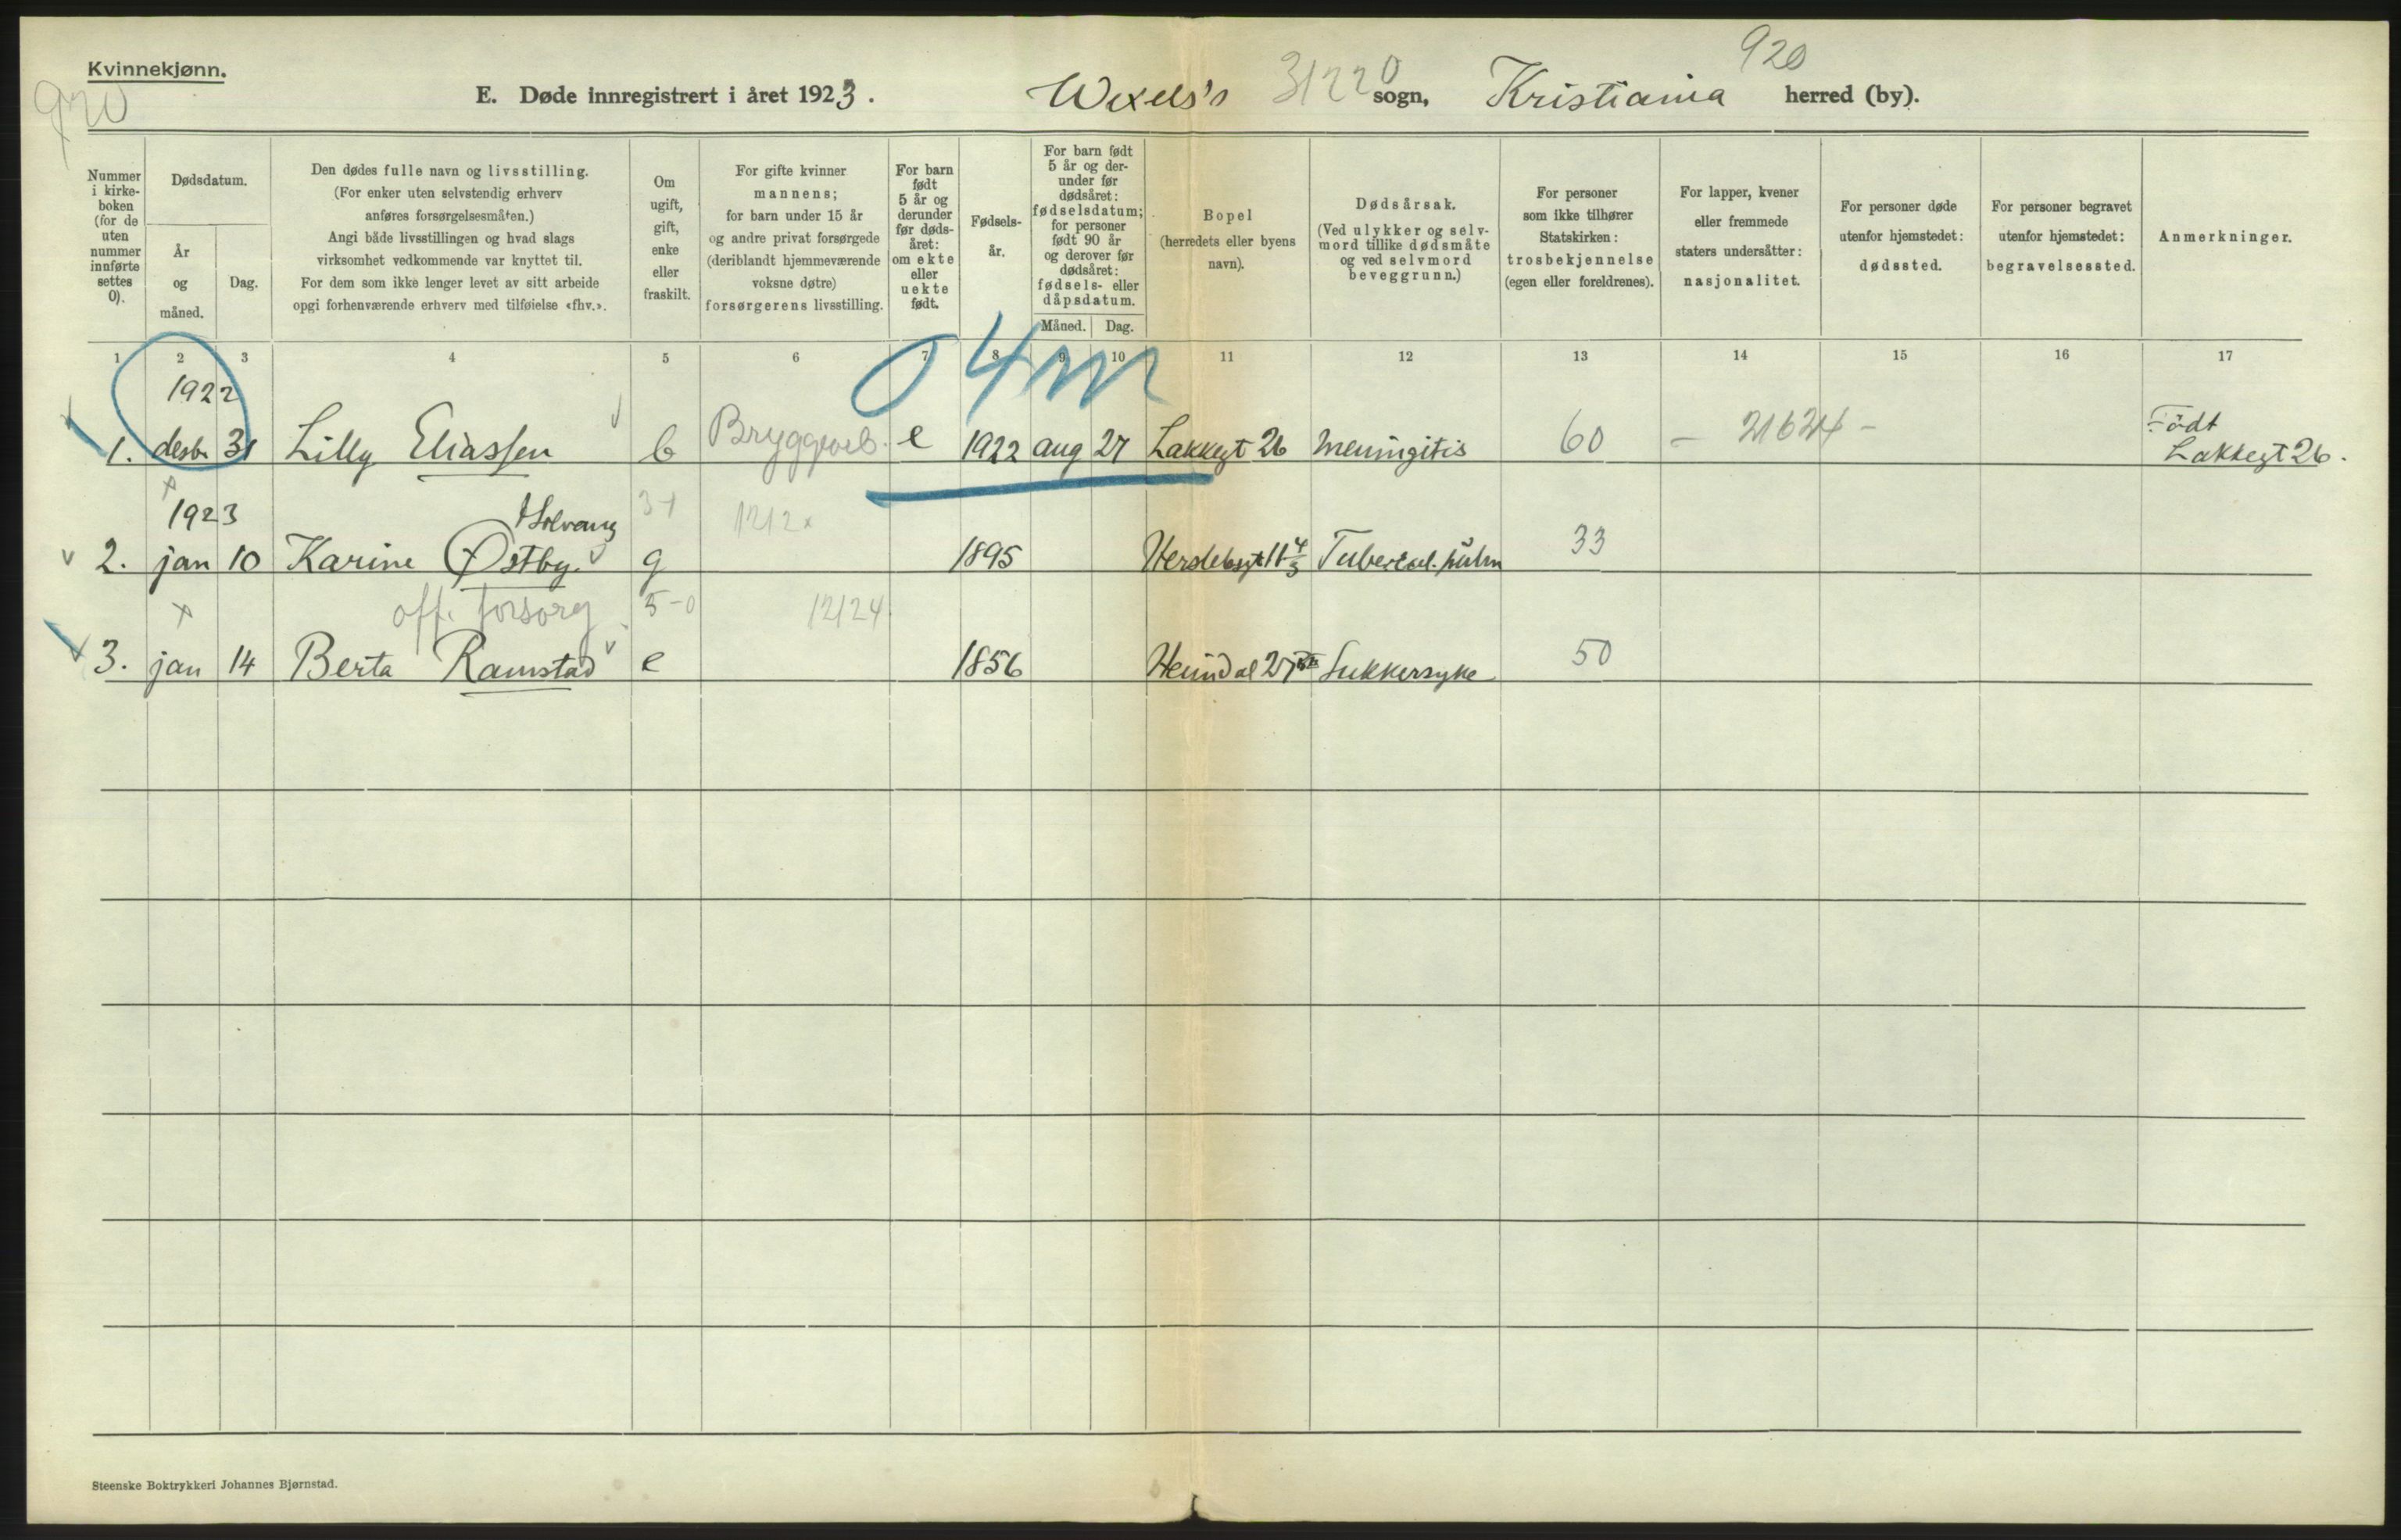 Kvinnekjønn.
920
920
E. Døde innregistrert i året 1923. Wexels's 31220 sogn, Kristiania herred (by).
Nummer i kirke- boken (for de uten nummer innførte settes 0).
Dødsdatum.
År og måned.
Dag.
Den dødes fulle navn og livsstilling.
(For enker uten selvstendig erhverv
anføres forsørgelsesmåten.)
Angi både livsstillingen og hvad slags
virksomhet vedkommende var knyttet til.
For dem som ikke lenger levet av sitt arbeide
opgi forhenværende erhverv med tilføielse «fhv.».
Om ugift, gift, enke eller fraskilt.
For gifte kvinner
mannens;
for barn under 15 år
og andre privat forsørgede
(deriblandt hjemmeværende
voksne døtre)
forsørgerens livsstilling.
For barn født 5 år og derunder før døds- året: om ekte eller uekte født.
Fødsels- år.
For barn født 5 år og der- under før dødsåret: fødselsdatum; for personer født 90 år og derover før dødsåret: fødsels- eller dåpsdatum.
Måned. Dag.
Bopel
(herredets eller byens
navn).
Dødsårsak.
(Ved ulykker og selv-
mord tillike dødsmåte
og ved selvmord
beveggrunn.)
For personer
som ikke tilhører
Statskirken:
trosbekjennelse
(egen eller foreldrenes).
For lapper, kvener
eller fremmede
staters undersåtter:
nasjonalitet.
For personer døde
utenfor hjemstedet:
dødssted.
For personer begravet
utenfor hjemstedet:
begravelsessted.
Anmerkninger.
1 2 3 4 5 6 7 8 9 10 11 12 13 14 15 16 17
04m
1922
1. desbr 31 Lilly Eliassen b Bryggearb. e 1922 aug 27 Lakkegt 26 Meningitis 60 - 21624 - Født
Lakkegt 26.
1923 Solvang 1212x
2. jan 10 Karine Østby. g 1895 Herslebsgt 11 Tubercul. pulm 33
x off. forsørg 5-0 12124
3. jan 14 Berta Ramstad e 1856 Heimdal 27 Sukkersyke 50
Steenske Boktrykkeri Johannes Bjørnstad.